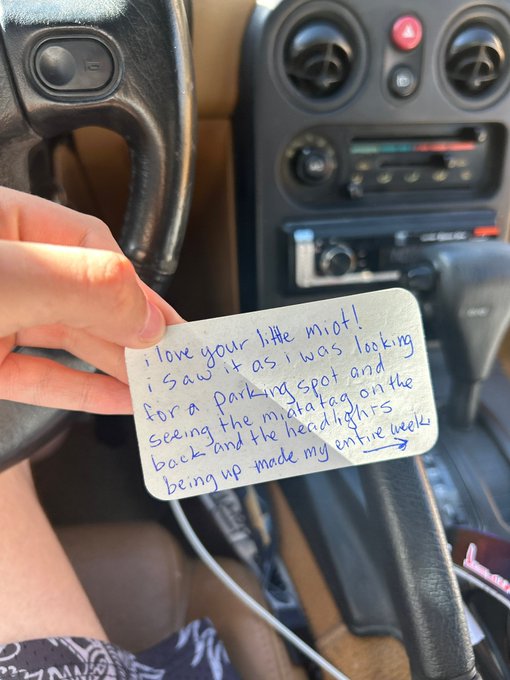 i love your little miot!
i saw it as i was looking
for a parking spot and
seeing the miata tag on the
back and the headlights
being up made my entire week